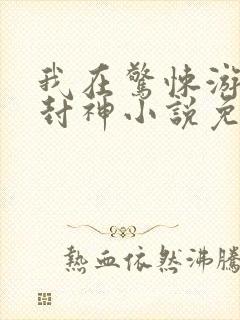 我在驚悚游
封神小說免
熱血依然沸騰